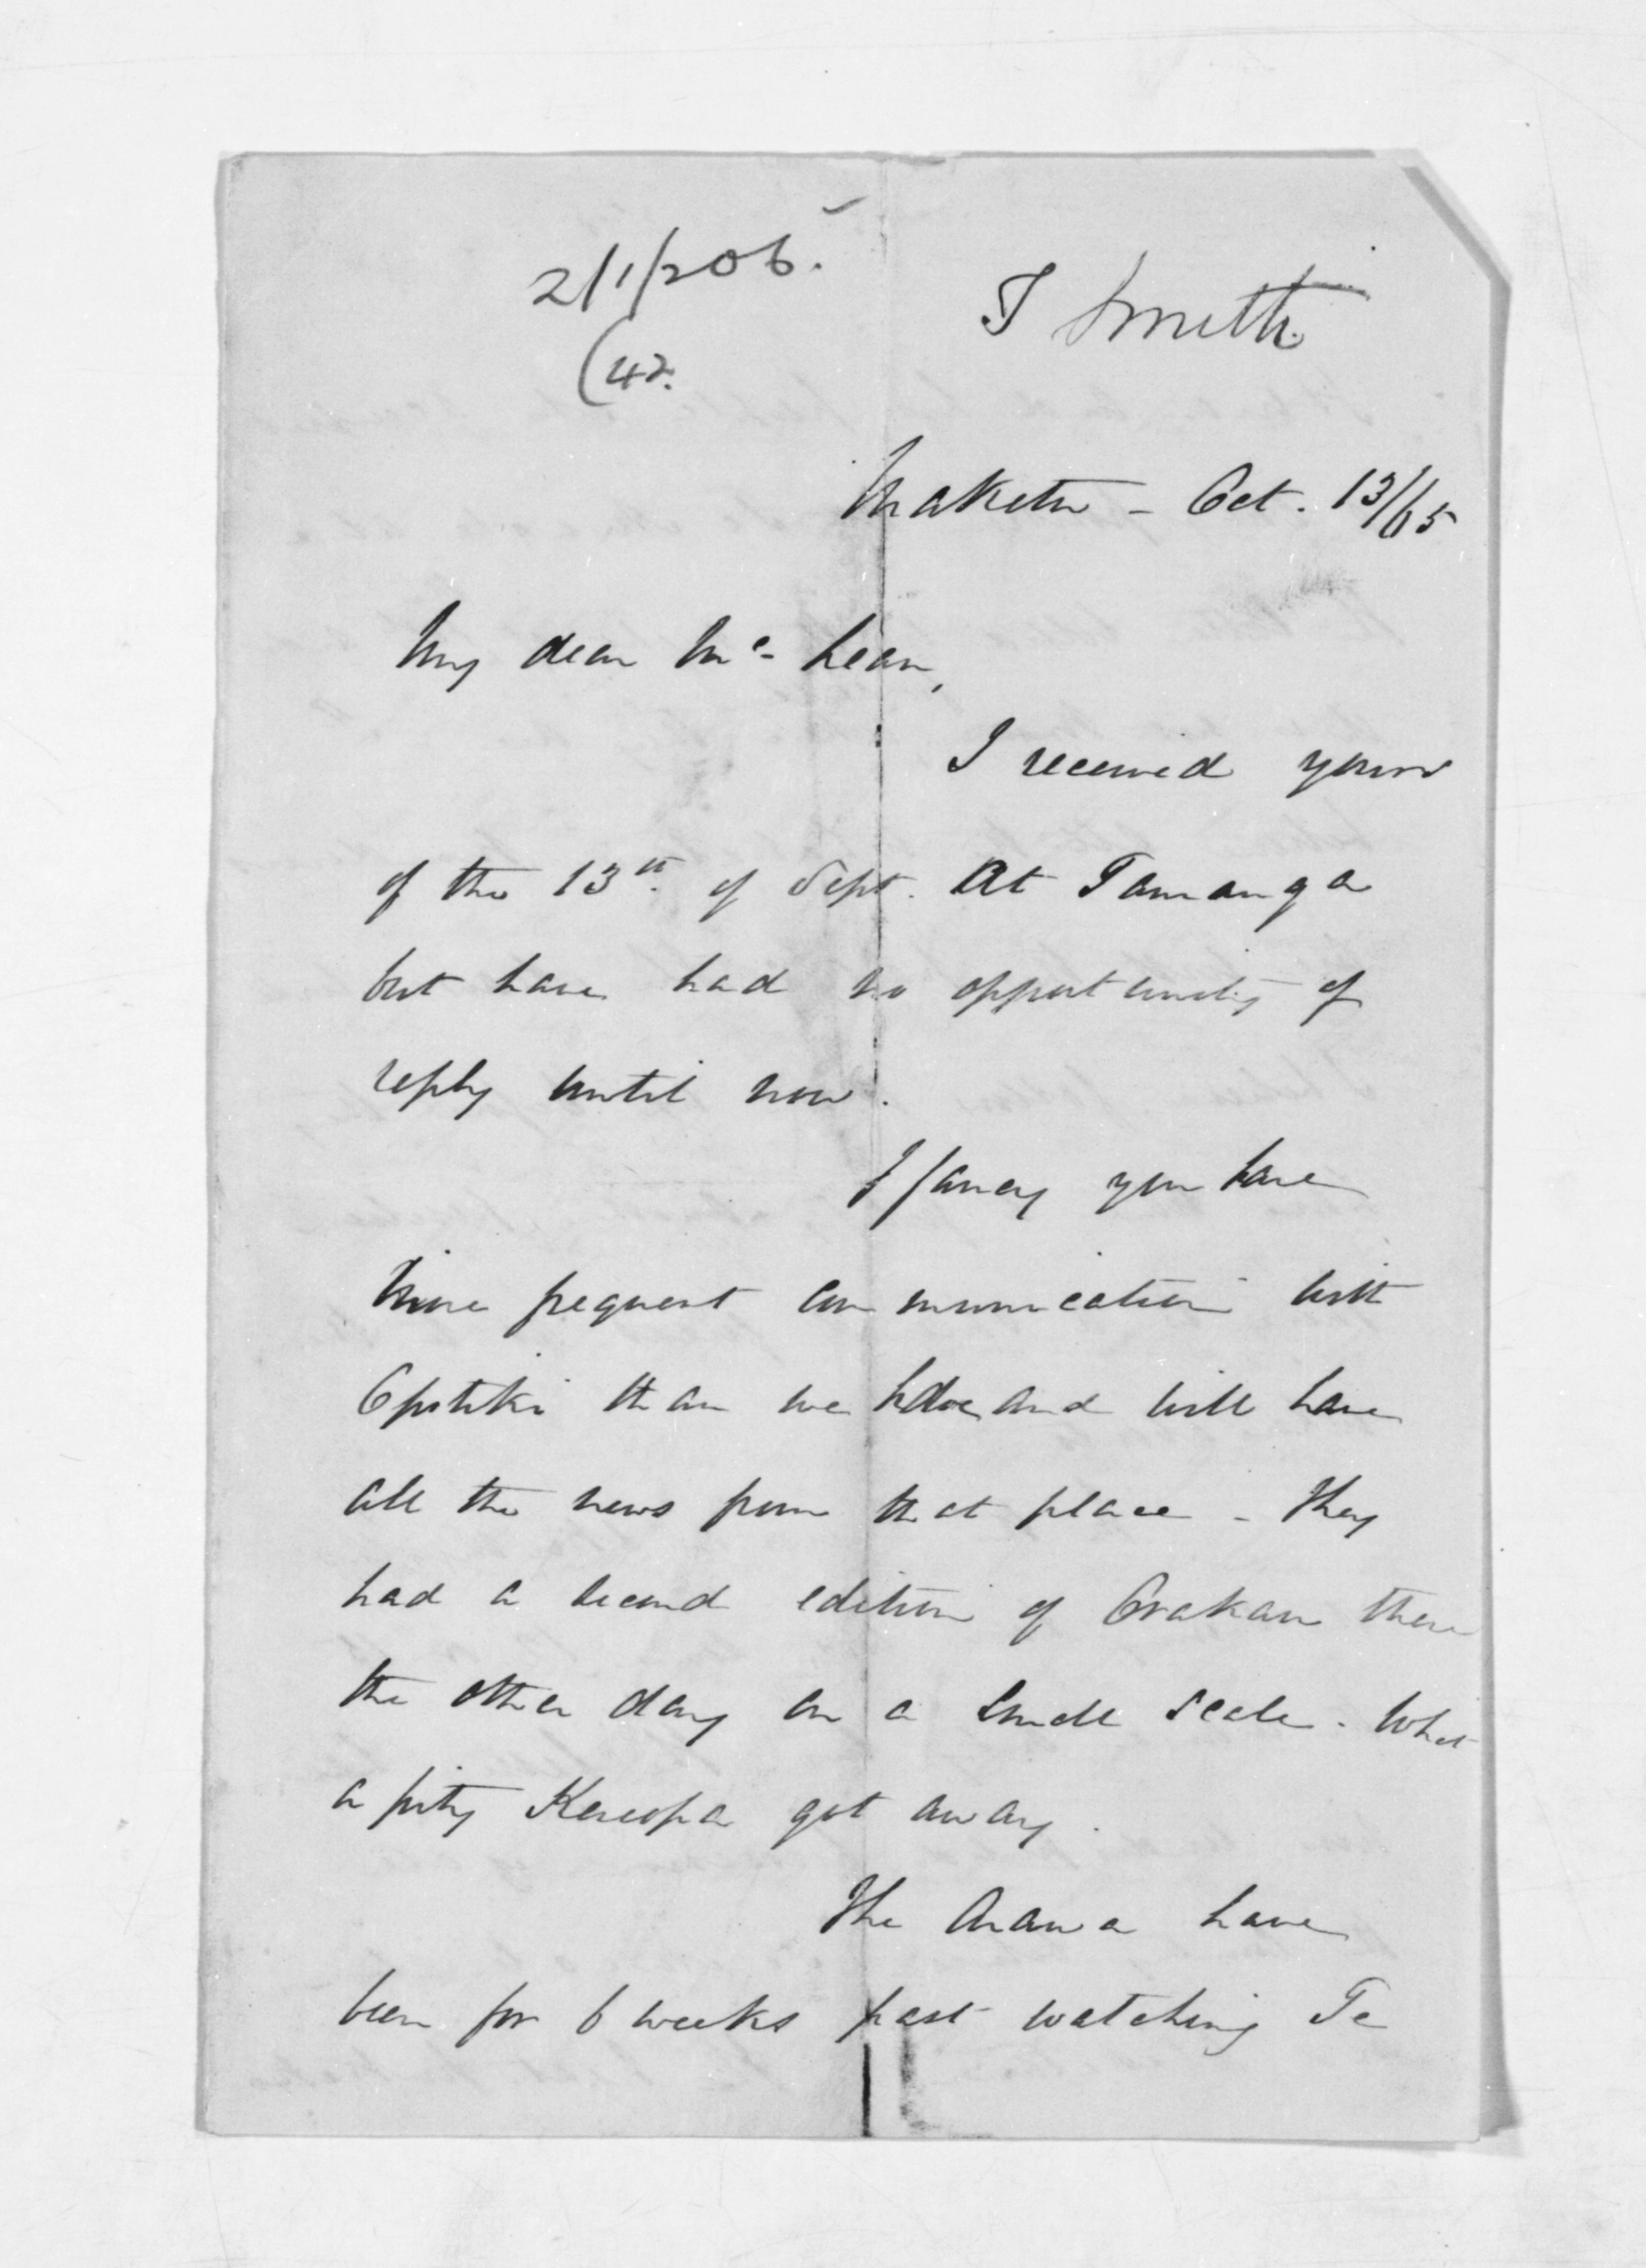 2/1/206.
(42.
T Smith
Maketu - Oct. 13/65
My dear Mc Lean,
I received yours
of the 13th. of Sept. at Tauranga
but have had no opportunity of
reply until now.
I fancy you have
more frequent communication with
Opotiki than we have and will have
all the news from that place - They
had a second edition of Orakau there
the other day on a small scale. What
a pity Kereopa got away.
The Arawa have
been for 6 weeks past watching Te